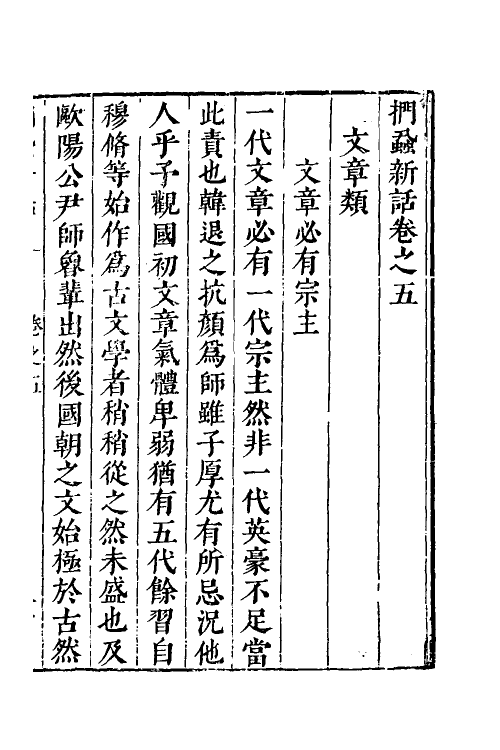 捫蝨新話卷之五
文章類
文章必有宗主
一代文章必有一代宗主然非一代英豪不足當
此責也韓退之抗顏為師雖子厚尤有所忌況他
人乎予觀國初文章氣體卑弱猶有五代餘習自
穆脩等始作為古文學者稍稍從之然未盛也及
歐陽公尹師魯輩出然後國朝之文始極於古然
卷之五